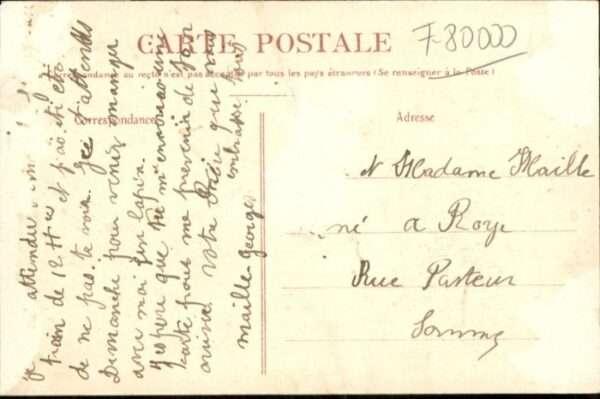 CARTE POSTALE
F80000
La Correspondance au recto n'est pas acceptée par tous les pays étrangers (Se renseigner à la Poste)
Correspondance
Adresse
je attendu
train de 12 H et
de ne pas te voir. Je t'attends
Dimanche pour venir manger
avec moi un lapin.
J'espère que tu m'enverras une
carte pour me prévenir de
votre que vous
embrasse
Maille Georges
Madame Maille
né a Roye
Rue Pasteur
Somme